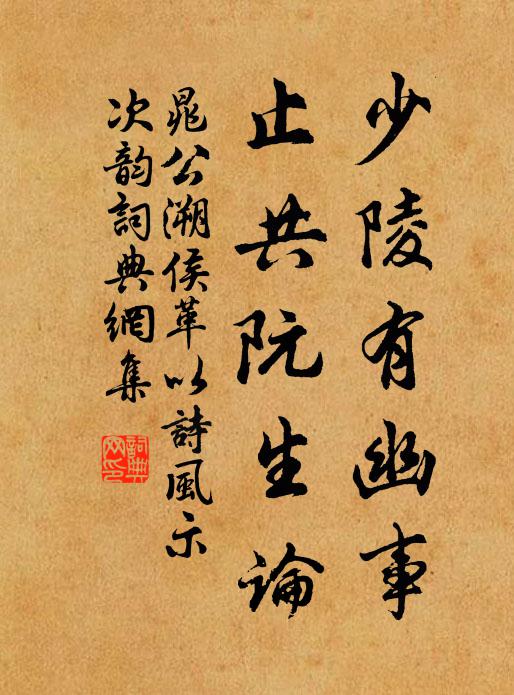 少陵有幽事
止共阮生論
晁公溯侯革以詩風示
次韵詞典網集
詞典網印